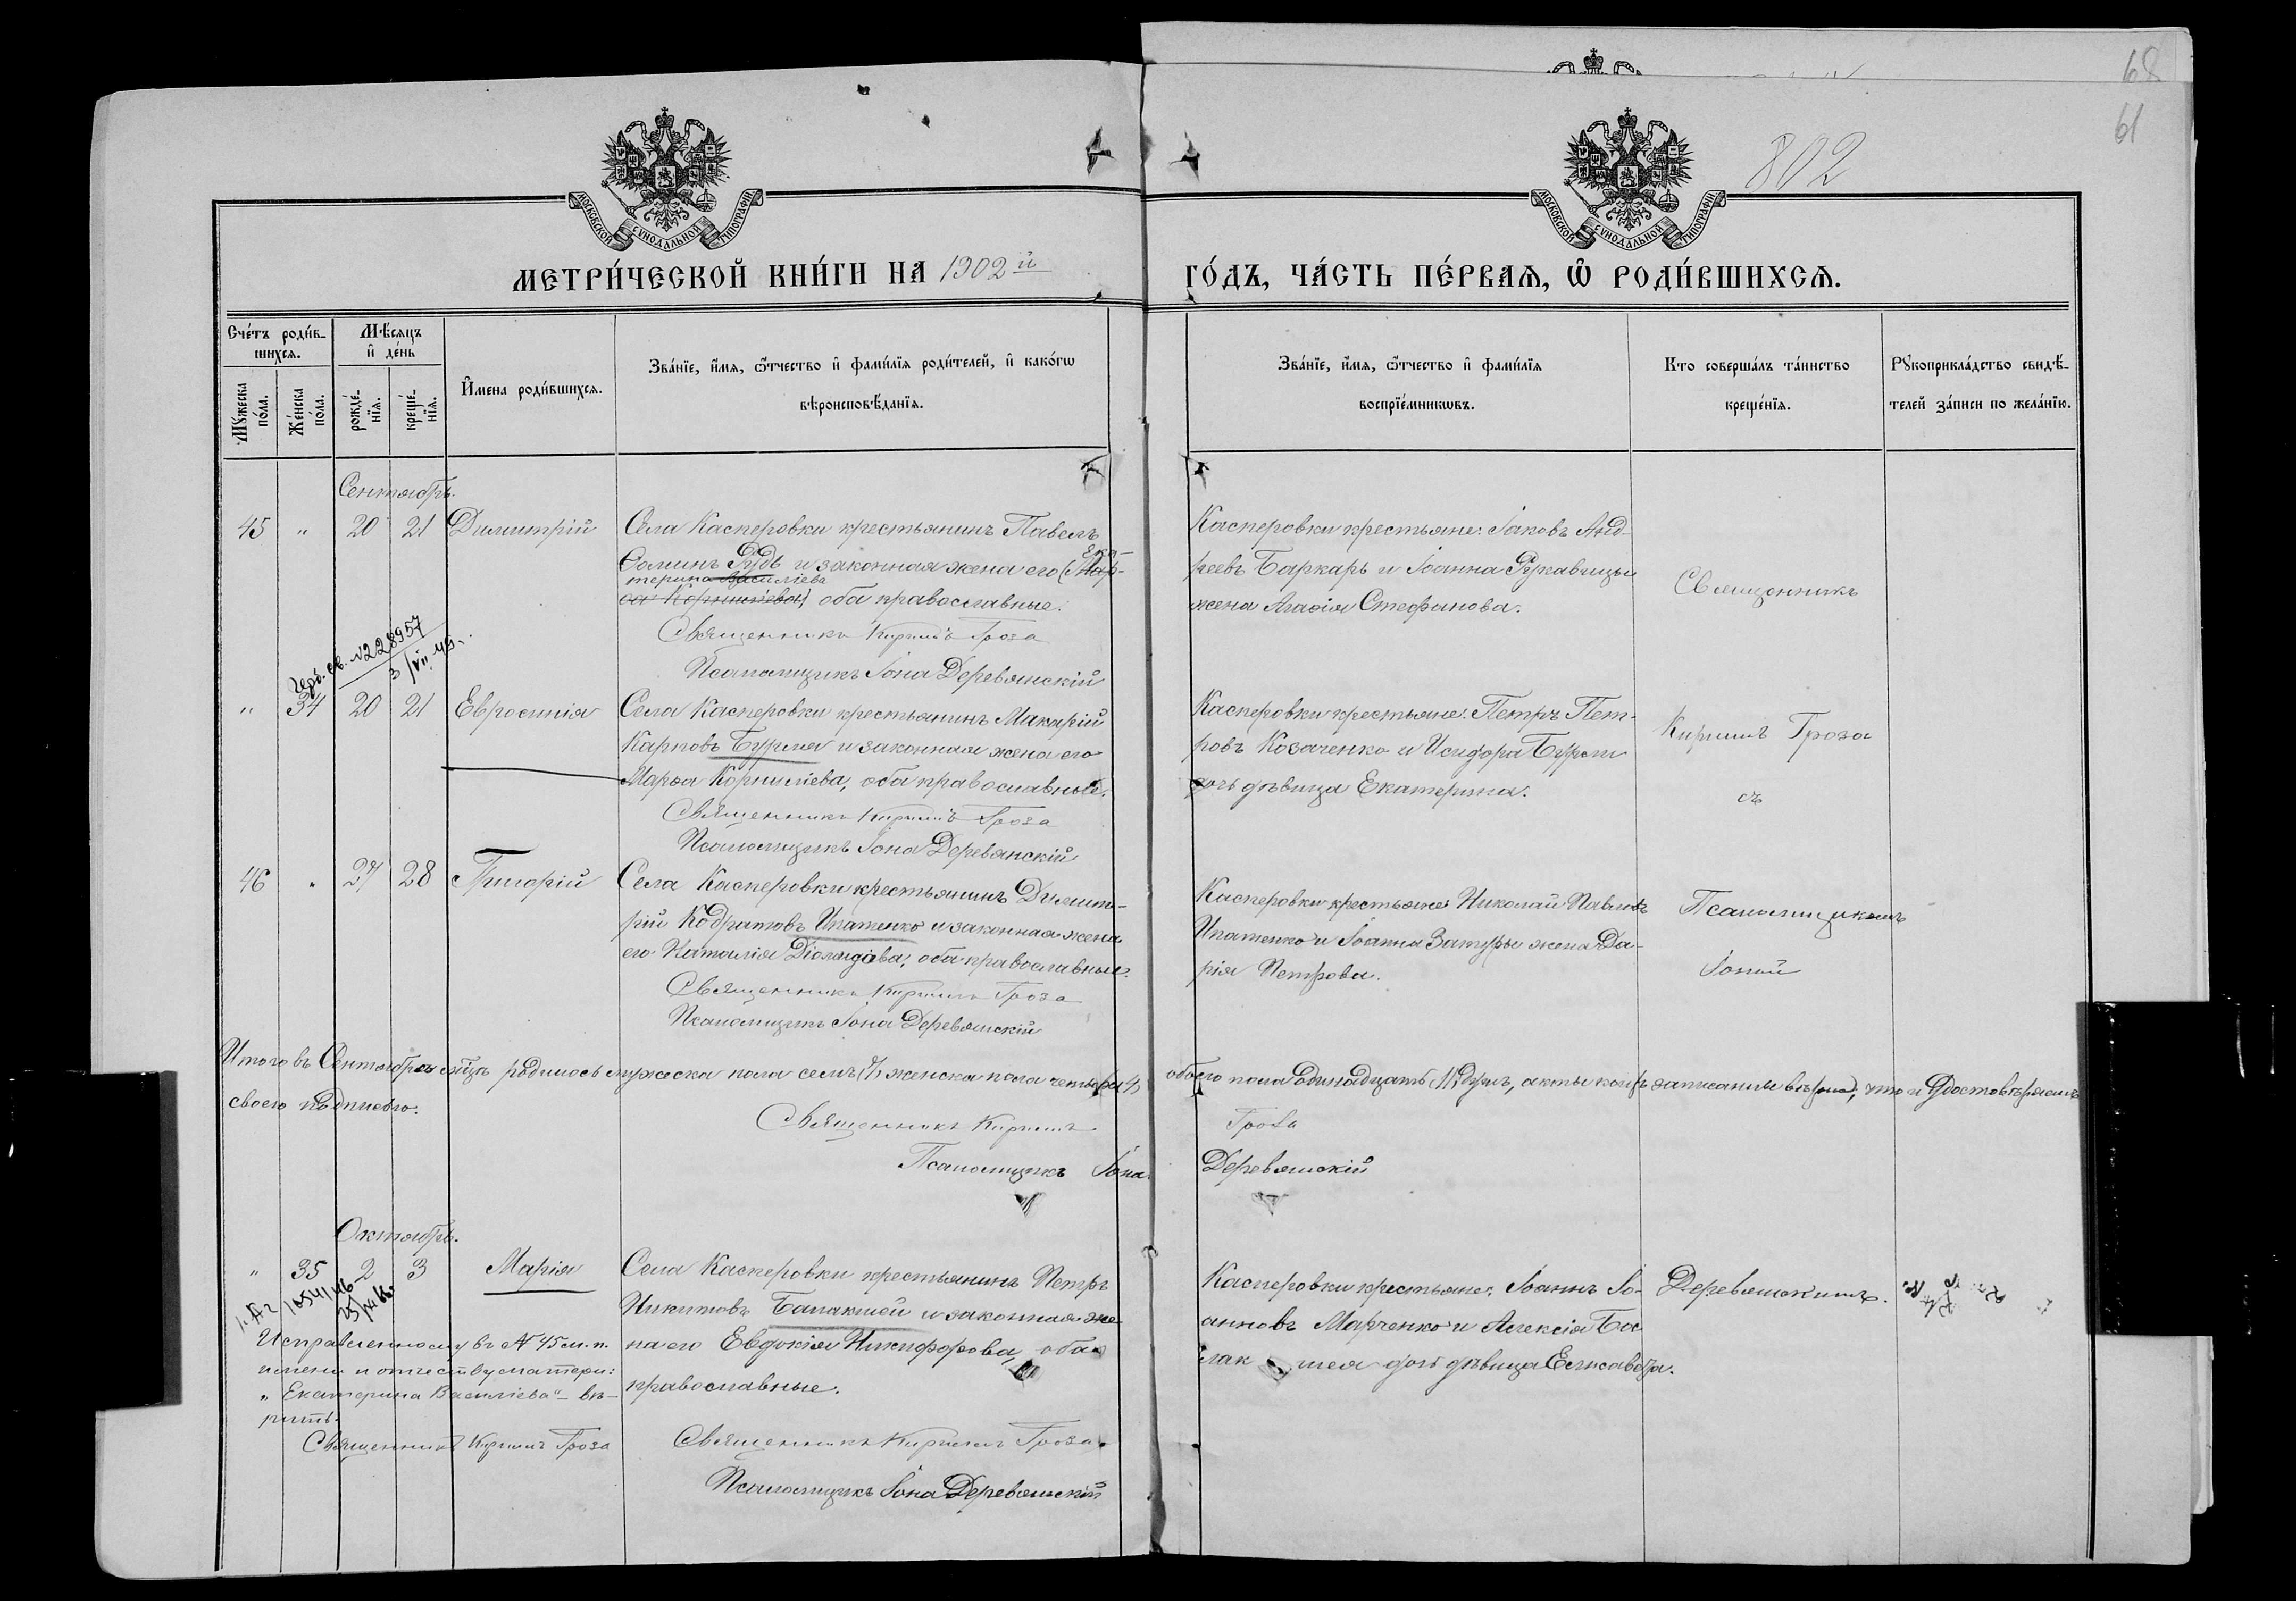 68
61
802
МОСКОВСКОЙ СѴНОДАЛЬНОЙ ТИПОГРАФІИ
МОСКОВСКОЙ СѴНОДАЛЬНОЙ ТИПОГРАФІИ
МЕТРИ́ЧЕСКОЙ КНИ́ГИ НА 1902 й
ГО́ДЪ, ЧА́СТЬ ПЕ́РВАЯ, Ѿ РОДИ́ВШИХСЯ.
Сче́тъ роди́в-
шихся.
Мѣ́сяцъ
и де́нь
Му́жеска по́ла.
Же́нска по́ла.
рожде́-
нїя.
креще́-
нїя.
И́мена роди́вшихся.
Зва́нїе, и́мя, ѻ́тчество и фами́лїя роди́телей, и како́гѡ
вѣроисповѣ́данїя.
Зва́нїе, и́мя, ѻ́тчество и фами́лїя
воспрїе́мникѡвъ.
Кто соверша́лъ та́инство
креще́нїя.
Рꙋкоприкла́дство свидѣ́-
телей за́писи по жела́нїю.
Сентябрь.
45 " 20 21 Димитрій
Села Касперовки крестьянинъ Павелъ
Ѳоминъ Рудь и законная жена его (Мар-
Ека-
терина Василіева
ѳа Корниліева) оба православные.
Священникъ Кириллъ Гроза
Псаломщикъ Іона Деревянскій
Касперовки крестьяне: Іаковъ Анд-
реевъ Баркарь и Іоанна Рукавицы
жена Агаѳія Стефанова.
Священникъ
св. №228957
3/VII 49
" 34 20 21 Евросинія
Села Касперовки крестьянинъ Макарій
Карповъ Бурма и законная жена его
Марѳа Корнилiева, оба православные.
Священникъ Кириллъ Гроза
Псаломщикъ Іона Деревянскій
Касперовки крестьяне: Петръ Пет-
ровъ Козаченко и Исидора Бурмы
дочь дѣвица Екатерина.
Кириллъ Гроза
съ
46 " 27 28 Григорій
Села Касперовки крестьянинъ Димит-
рій Кодратовъ Ипатенко и законная жена
его Наталія Діомидова, оба православные.
Священникъ Кириллъ Гроза
Псаломщикъ Іона Деревянскій
Касперовки крестьяне: Николай Павловъ
Ипатенко и Іоанна Затуры жена Да-
рія Петрова.
Псаломщикомъ
Іоной
Итого въ Сентябрѣ мѣсцѣ родилось мужеска пола семь (7) женска пола четыре (4) обоего пола одинадцать (11) душъ, акты коихъ записаны вѣрно, что и удостовѣряемъ
своею подписью.
Священникъ Кириллъ Гроза
Псаломщикъ Іона Деревянскій
Октябрь.
" 35 2 3 Марія
Села Касперовки крестьянинъ Петръ
Никитовъ Балакшей и законная же-
на его Евдокія Никифорова, оба
православные.
Священникъ Кириллъ Гроза.
Псаломщикъ Іона Деревянскій
Касперовки крестьяне: Іоаннъ Іо-
анновъ Марченко и Алексія Ба-
лак шея дочь дѣвица Елисавета.
Деревянскимъ.
Исправленному въ № 45 м. п.
имени и отчеству матери:
"Екатерина Василіева" - вѣ-
рить.
Священникъ Кириллъ Гроза